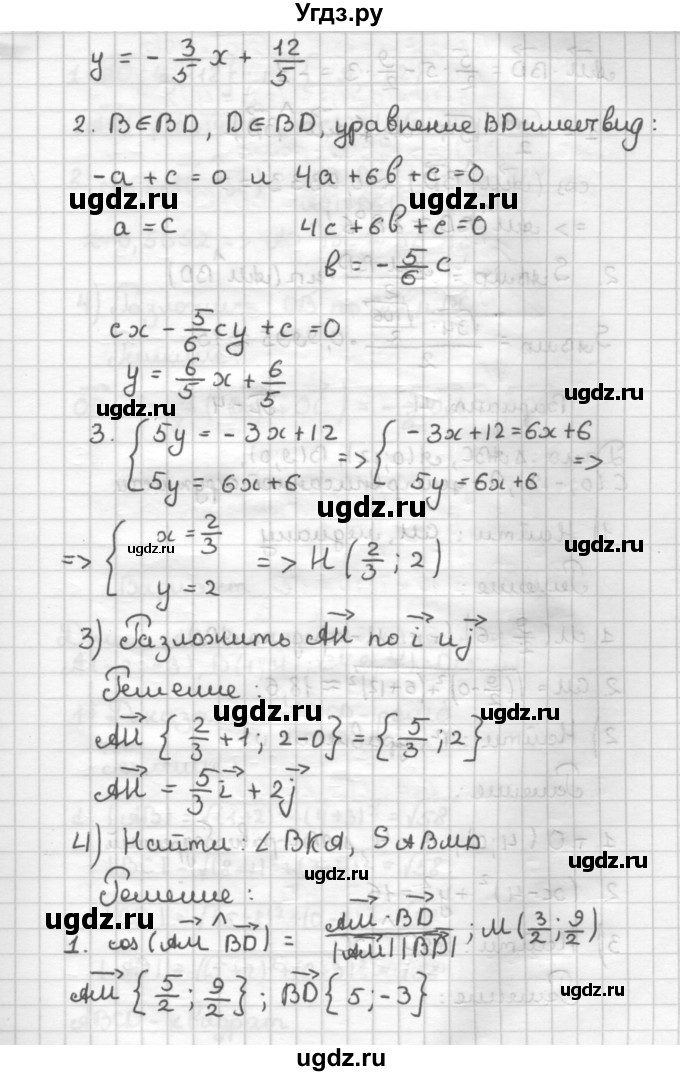 Угдз.ру
y = - 3/5 x + 12/5
2. B∈BD, D∈BD, уравнение BD имеет вид:
-a + c = 0 и 4a + 6b + c = 0
ugdz.ru ugdz.ru
a = c 4c + 6b + c = 0
b = - 5/6 c
cx - 5/6 cy + c = 0
y = 6/5 x + 6/5
ugdz.ru ugdz.ru
3. { 5y = - 3x + 12 => { - 3x + 12 = 6x + 6 =>
5y = 6x + 6 5y = 6x + 6
ugdz.ru
=> { x = 2/3 => H (2/3 ; 2)
y = 2
ugdz.ru ugdz.ru
3) Разложить AH по i и j
Решение:
ugdz.ru ugdz.ru
AH { 2/3 + 1 ; 2 - 0 } = { 5/3 ; 2 }
AH = 5/3 i + 2j
4) Найти: ∠ BKA, S ABMD
ugdz.ru
Решение:
ugdz.ru
1. cos (AM ^ BD) = AM · BD / |AM| |BD| ; M (3/2 ; 9/2)
ugdz.ru
AM { 5/2 ; 9/2 } ; BD { 5 ; -3 }
ugdz.ru